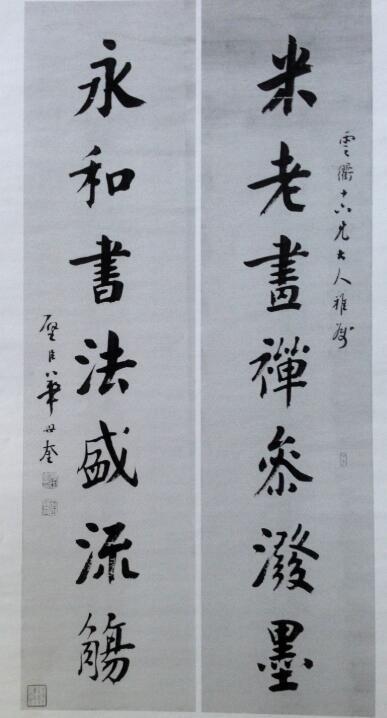 雲衢十六兄大人雅屬
米老畫禪參潑墨
永和書法盛流觴
璧臣華世奎